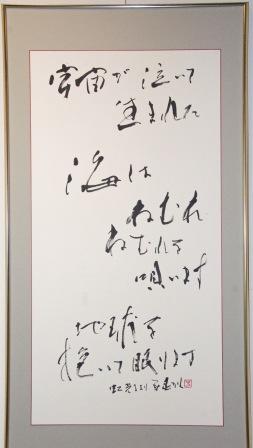 宇宙が泣いて
生まれた
海は
ねむれ
ねむれと
唄います
地球を
抱いて眠ります